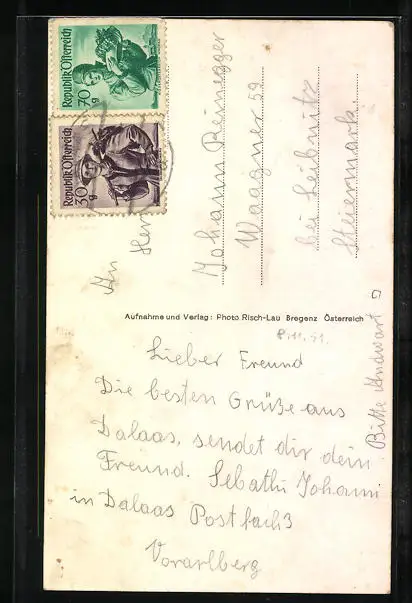 Republik Österreich
70 g
Republik Österreich
30 g
An Herr
Johann Reinegger
Waagner 59
bei Leibnitz
Steiermark.
Aufnahme und Verlag: Photo Risch-Lau Bregenz Österreich
8.11.51.
Lieber Freund
Die besten Grüße aus
Dalaas, sendet dir dein
Freund. Sebathi Johann
in Dalaas Postfach 3
Vorarlberg
Bitte Andwart